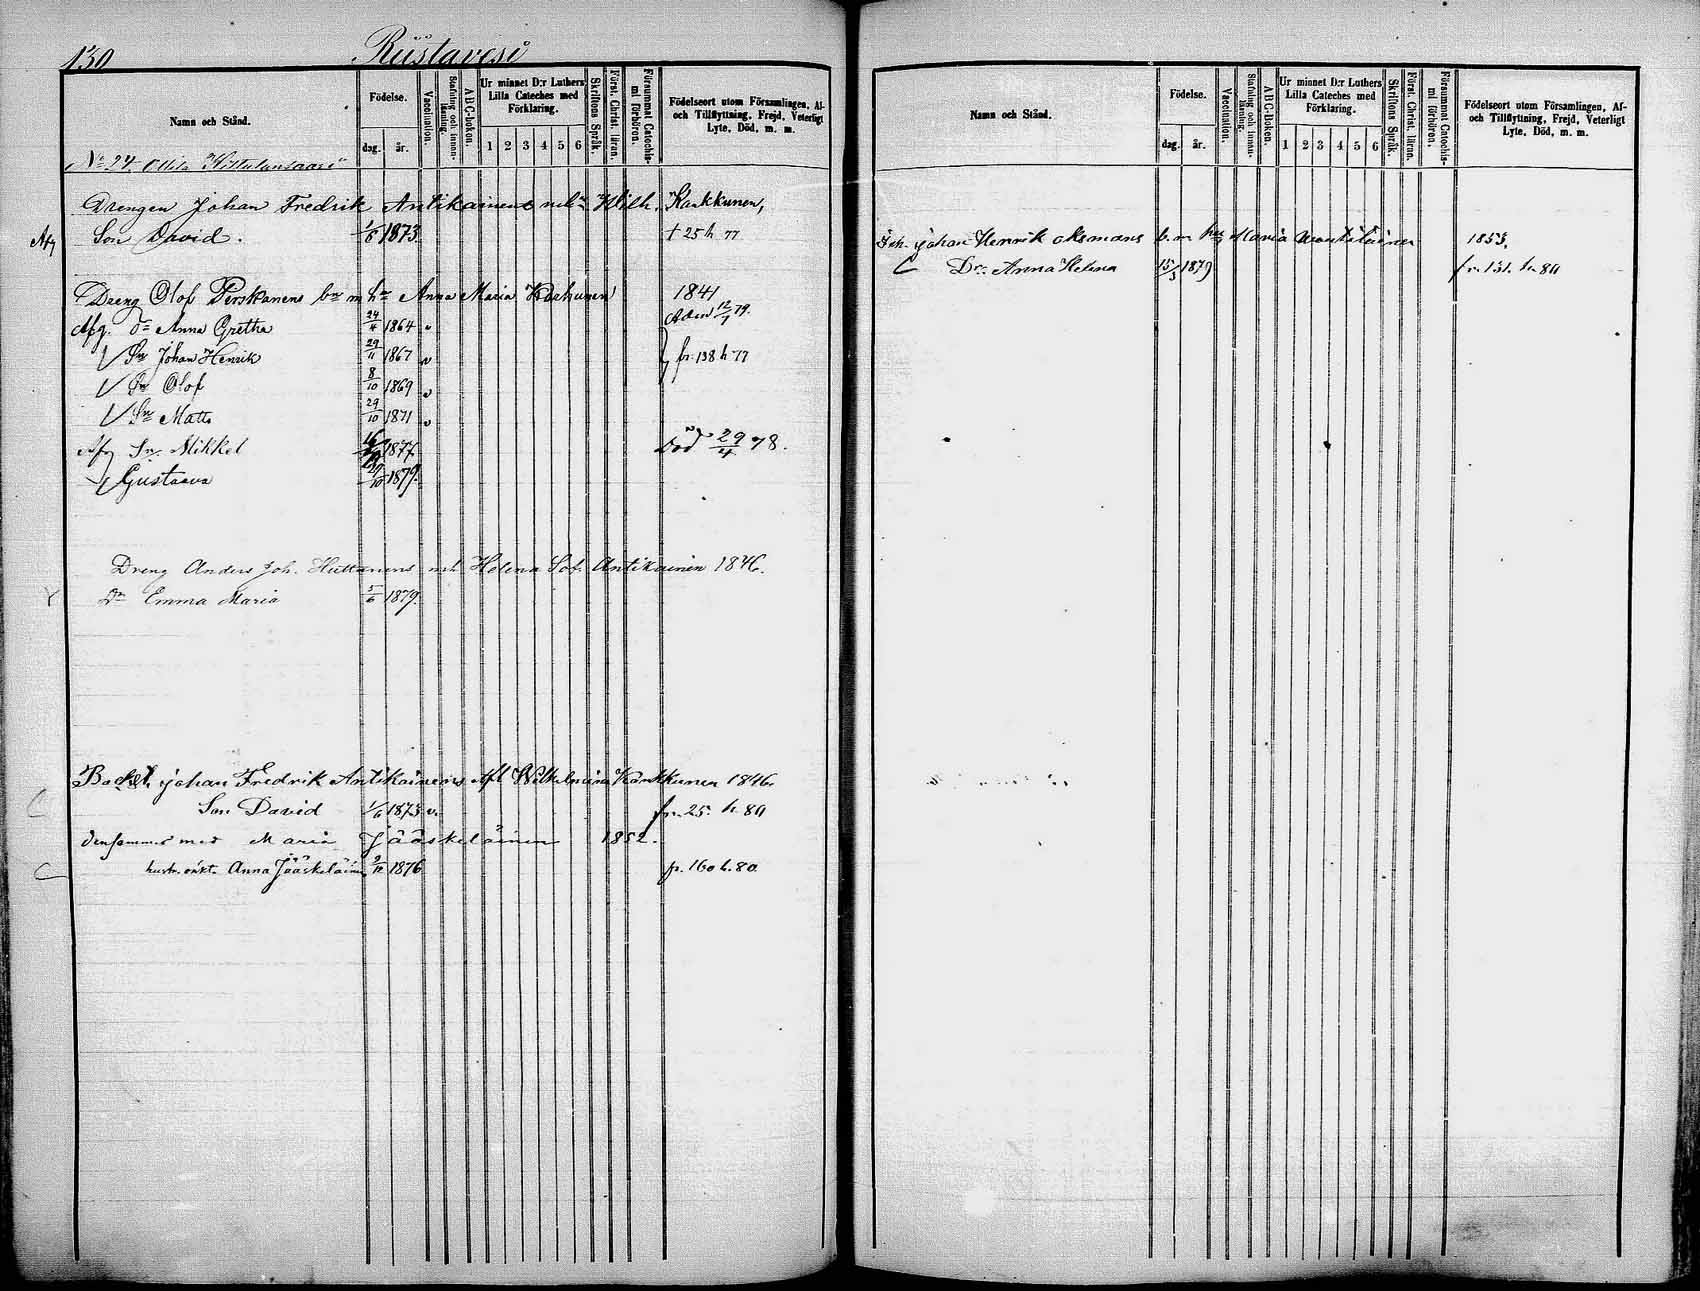 130 Riistavesi
Namn och Stånd.
Födelse.
dag. år.
Vaccination.
Stafning och innan-läsning.
A B C-boken.
Ur minnet D:r Luthers Lilla Cateches med Förklaring.
1 2 3 4 5 6
Skriftens Språk.
Först. Christ. läran.
Försummat Catechis-mi förhören.
Födelseort utom Församlingen, Af- och Tillflyttning, Frejd, Veterligt Lyte, Död, m. m.
No 24.
Drengen Johan Fredrik Antikainens Wilh. Kankkunen,
Afg Son David. 1/6 1873 + 25 h 77
Dreng Olof Perskanens Anna Maria 1841
Afg. Anna Gretha 24/4 1864 v
Sn Johan Henrik 29/11 1867 v fr. 138 h 77
Sn Olof 8/10 1869 v
Sn Matts 29/10 1871 v
Afg Sn Mikkel 1877 Död 29/4 78.
Gustaava 1879.
Dreng Anders Joh. Huttunens Helena Sof. Antikainen 1846.
Dr Emma Maria 5/6 1879.
Johan Fredrik Antikainens Wilhelmina Kankkunen 1846.
Son David 1/6 1873 v. fr. 25. h. 80
densamme med Maria Jääskeläinen 1852.
Anna Jääskeläinen 1876 fr. 160 h. 80
Namn och Stånd.
Födelse.
dag. år.
Vaccination.
Stafning och innan-läsning.
A B C-Boken.
Ur minnet D:r Luthers Lilla Cateches med Förklaring.
1 2 3 4 5 6
Skriftens Språk.
Först. Christ. läran.
Försummat Catechis-mi förhören.
Födelseort utom Församlingen, Af- och Tillflyttning, Frejd, Veterligt Lyte, Död, m. m.
Inh. Johan Henrik Asmans Maria 1853.
Dr. Anna Helena 15/3 1879 fr. 131. h. 80